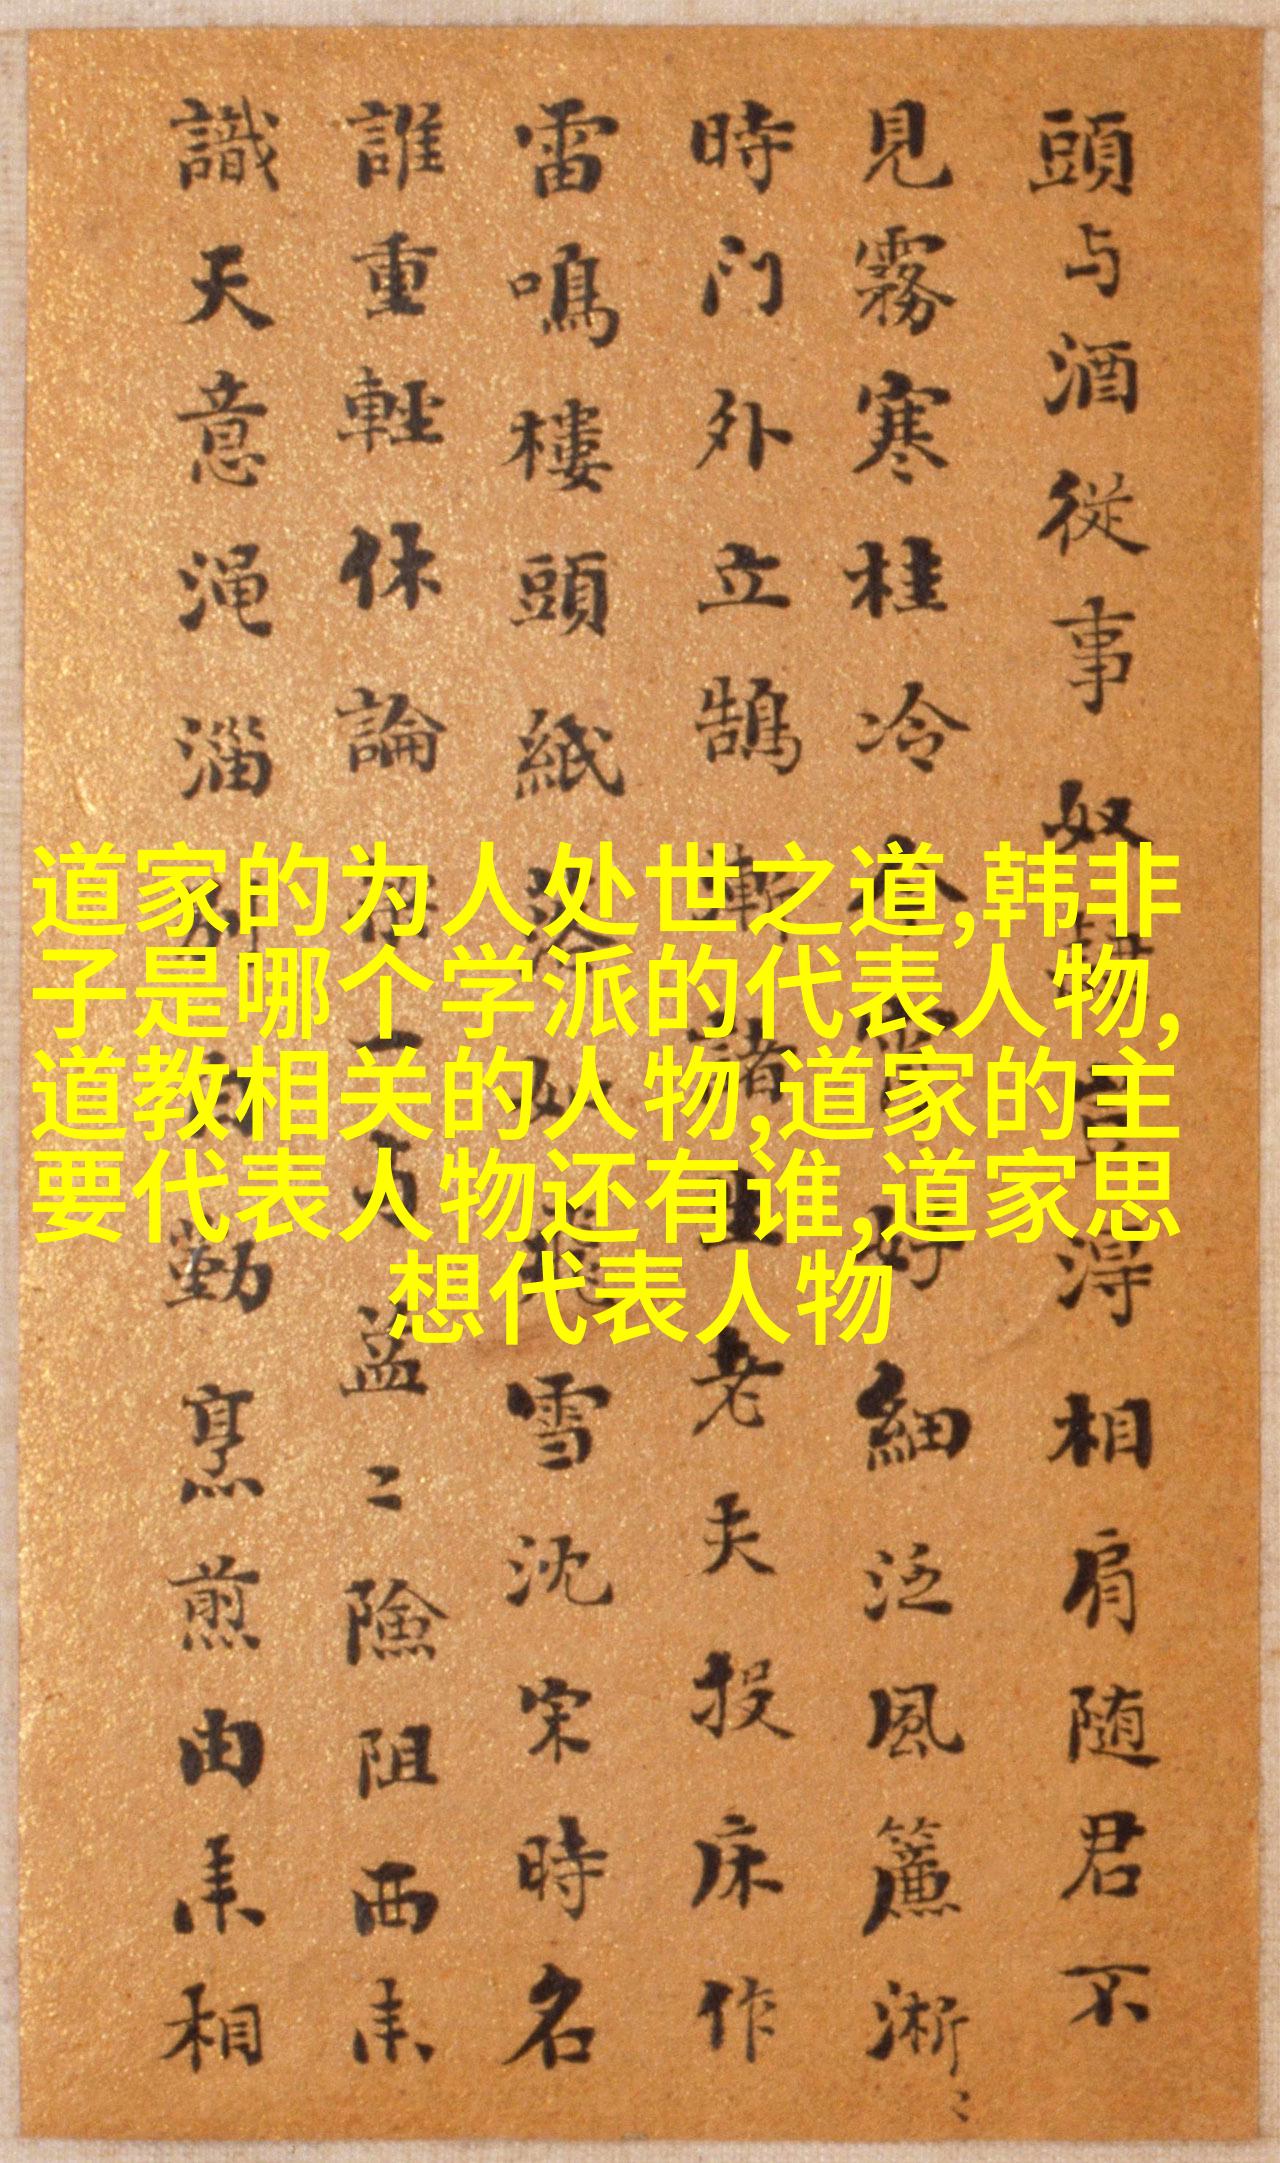 頭与酒從事奴得相肩随君不
見霧寒桂冷好細泛風簾淅〻
時门外立鵠漸諸里老夫投床作
雷鳴樓頭紙落雪沈宋時名
誰重輕休論一孟〻險阻西来
識天意渑淄別勤烹煎由来相
道家的为人处世之道,韩非
子是哪个学派的代表人物,
道教相关的人物,道家的主
要代表人物还有谁,道家思
想代表人物